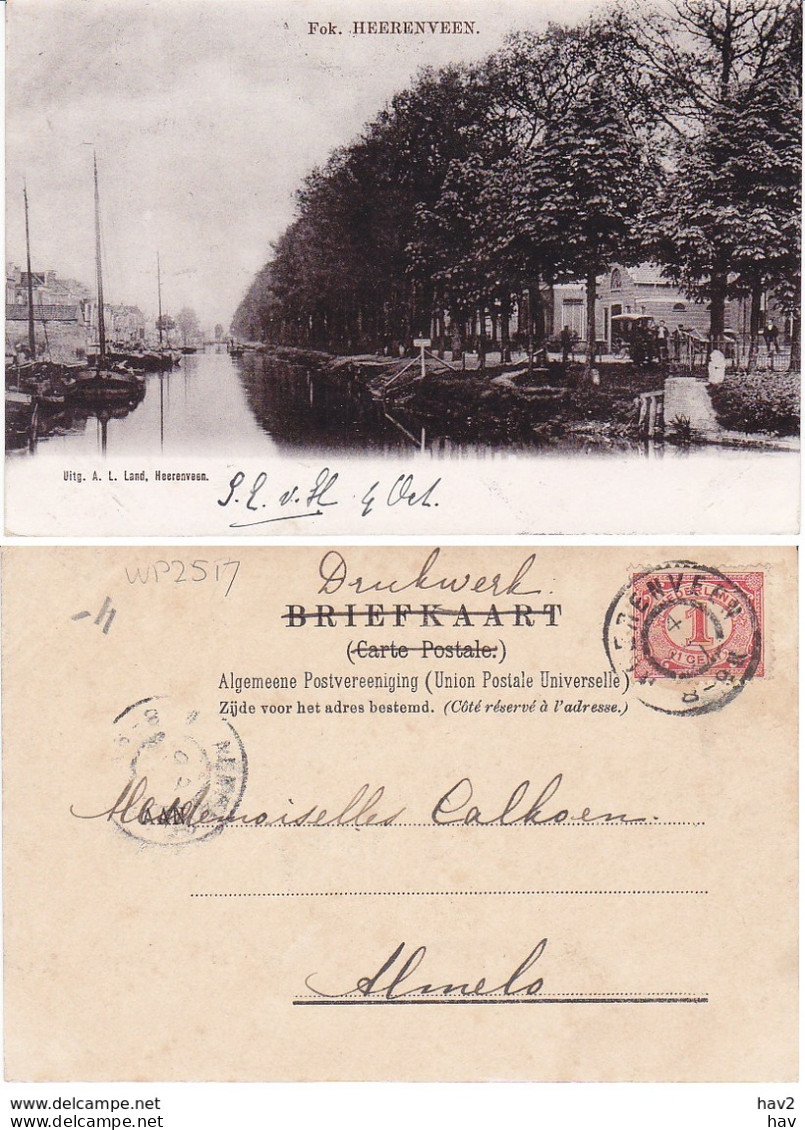 Fok. HEERENVEEN.
Uitg. A. L. Land, Heerenveen.
4 Oct.
WP2517
Drukwerk.
BRIEFKAART
(Carte Postale.)
Algemeene Postvereeniging (Union Postale Universelle)
Zijde voor het adres bestemd. (Côté réservé à l'adresse.)
HEERENVEEN
NEDERLAND
1
1 CENT
AAN
Mesdemoiselles Calkoen.
Almelo
Delcampe.net
hav2
hav